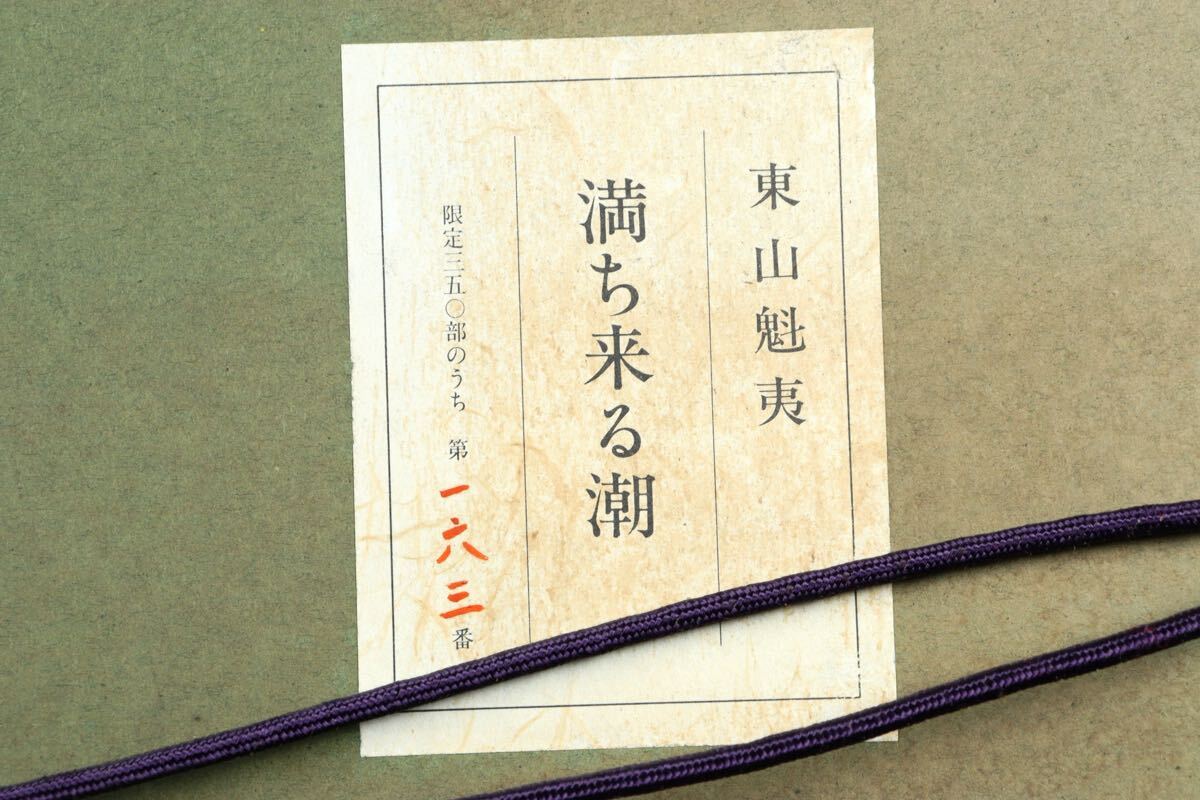 東山魁夷
満ち来る潮
限定三五〇部のうち 第一六三番